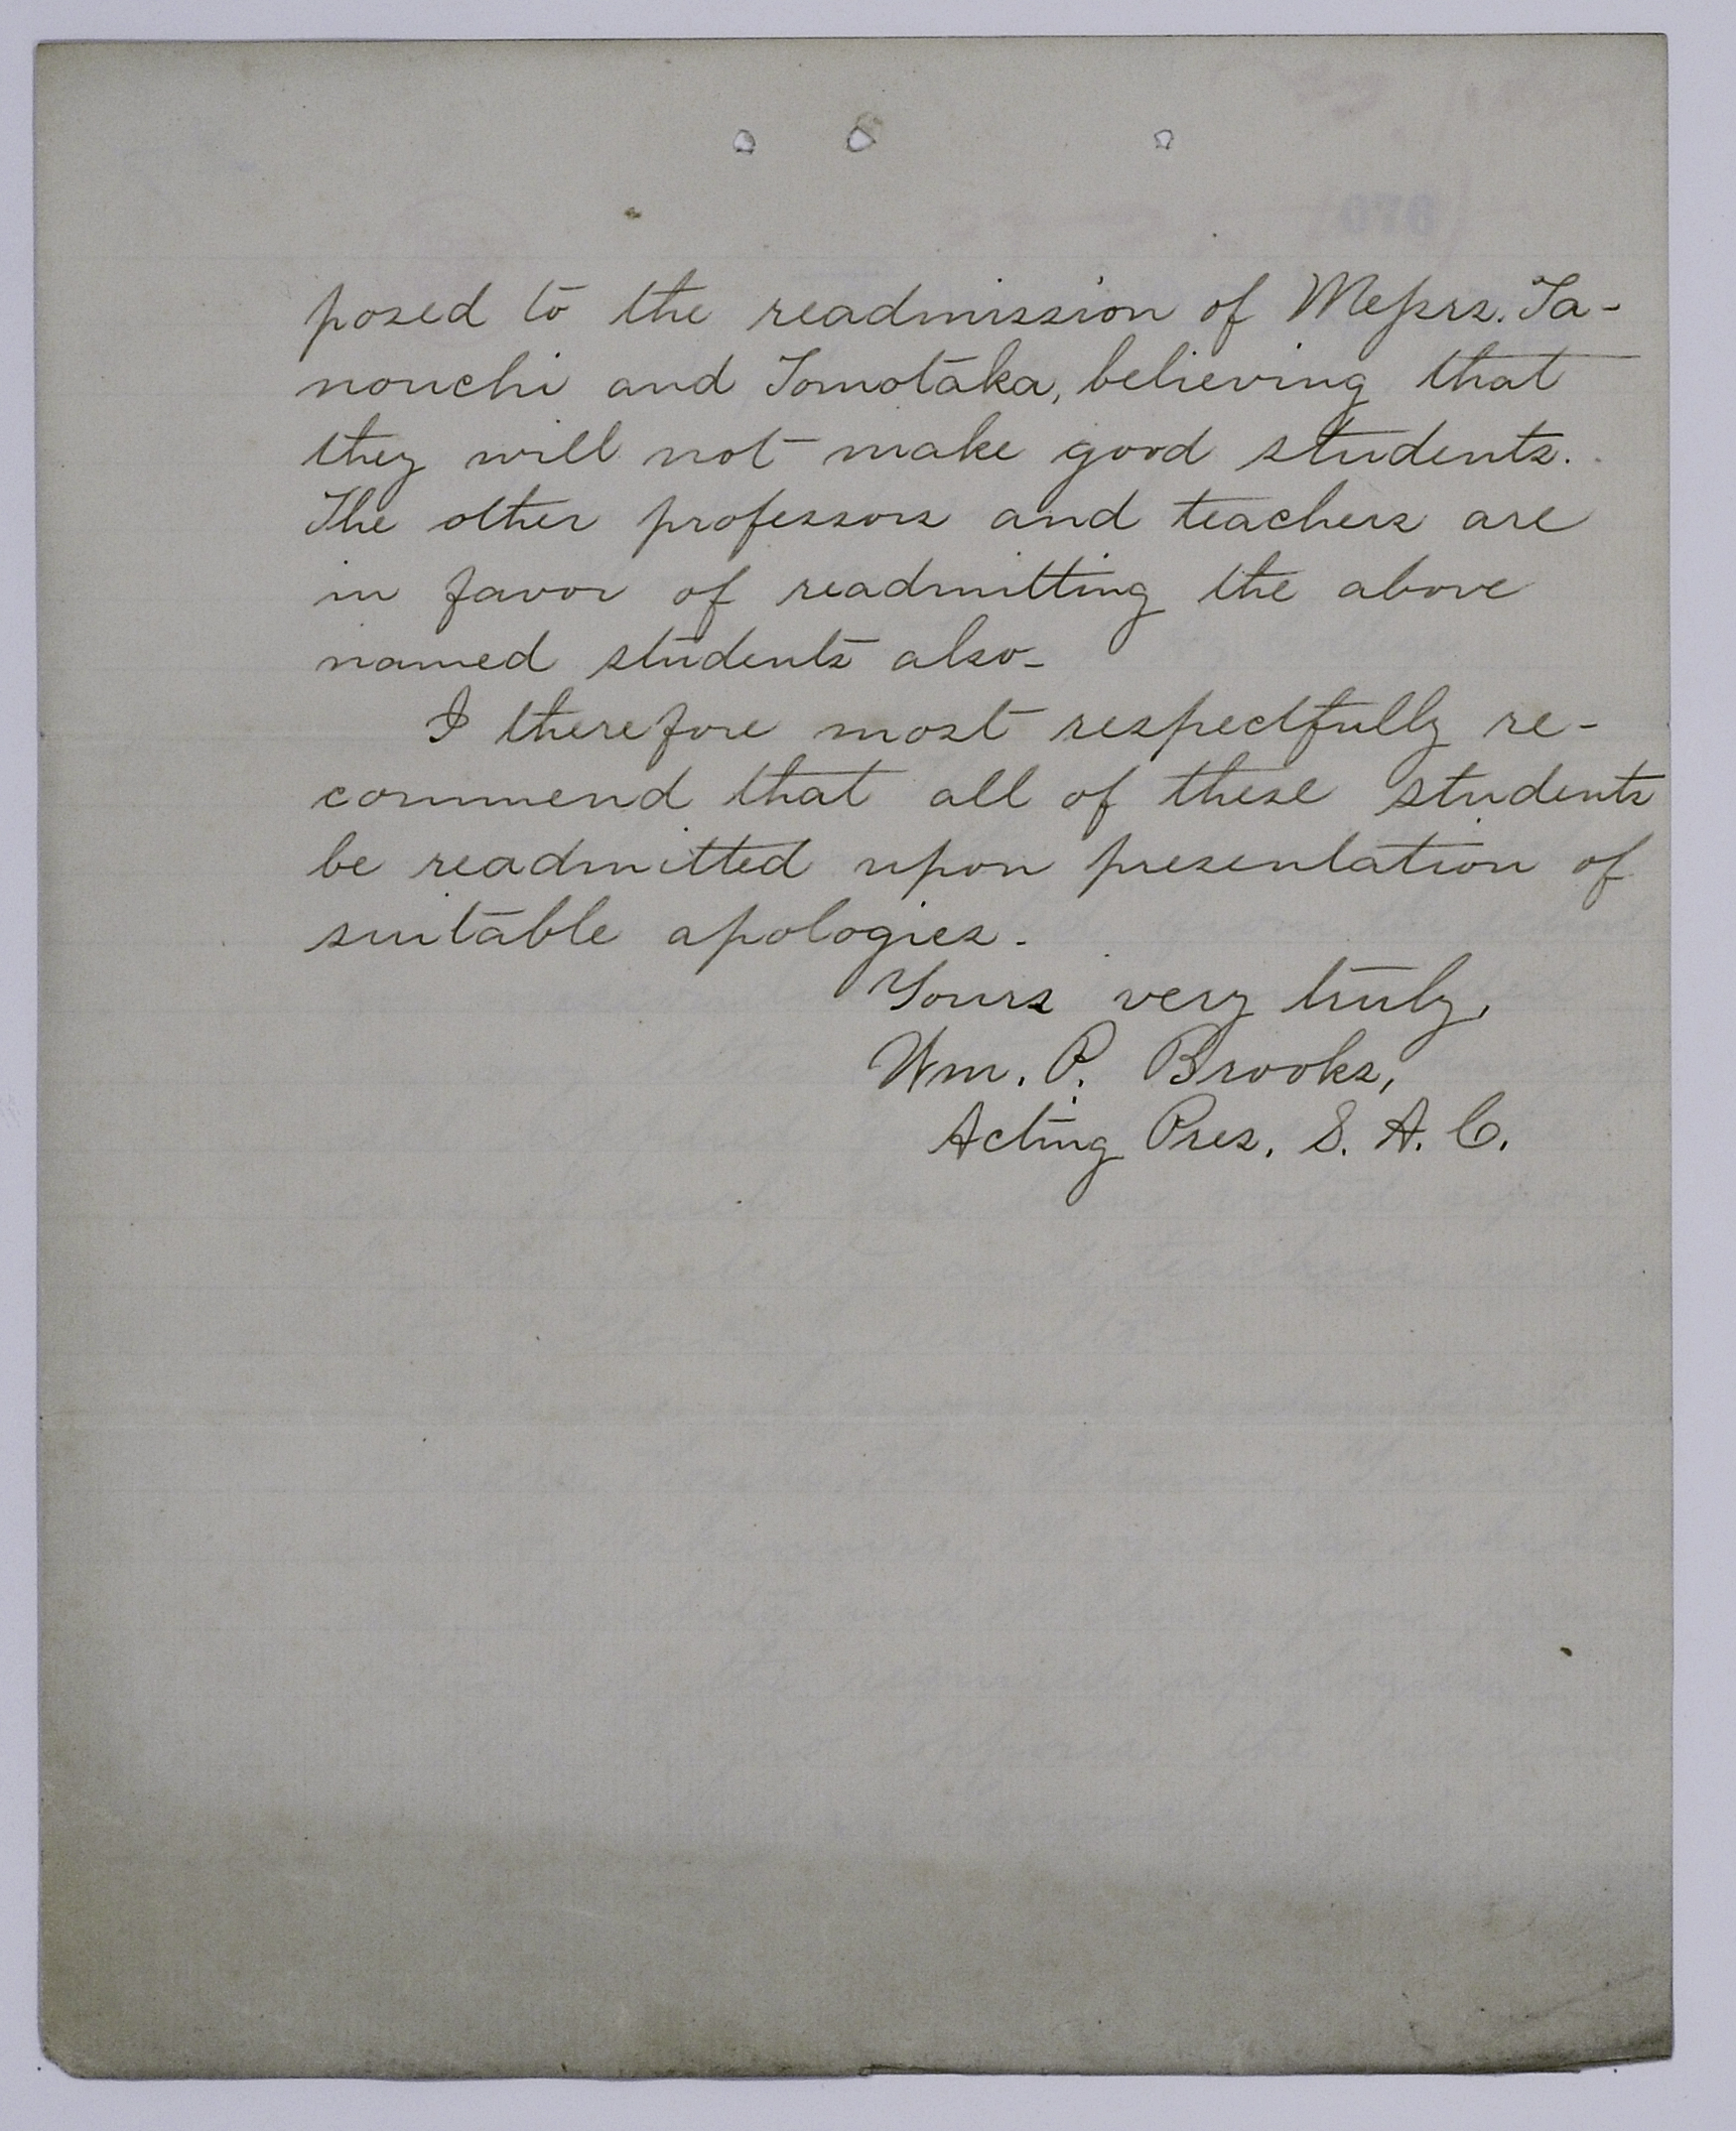 posed to the readmission of Messrs. Ta-
nouchi and Tomotaka, believing that
they will not make good students.
The other professors and teachers are
in favor of readmitting the above
named students also-
I therefore most respectfully re-
commend that all of these students
be readmitted upon presentation of
suitable apologies.
Yours very truly,
Wm. P. Brooks,
Acting Pres. S. A. C.